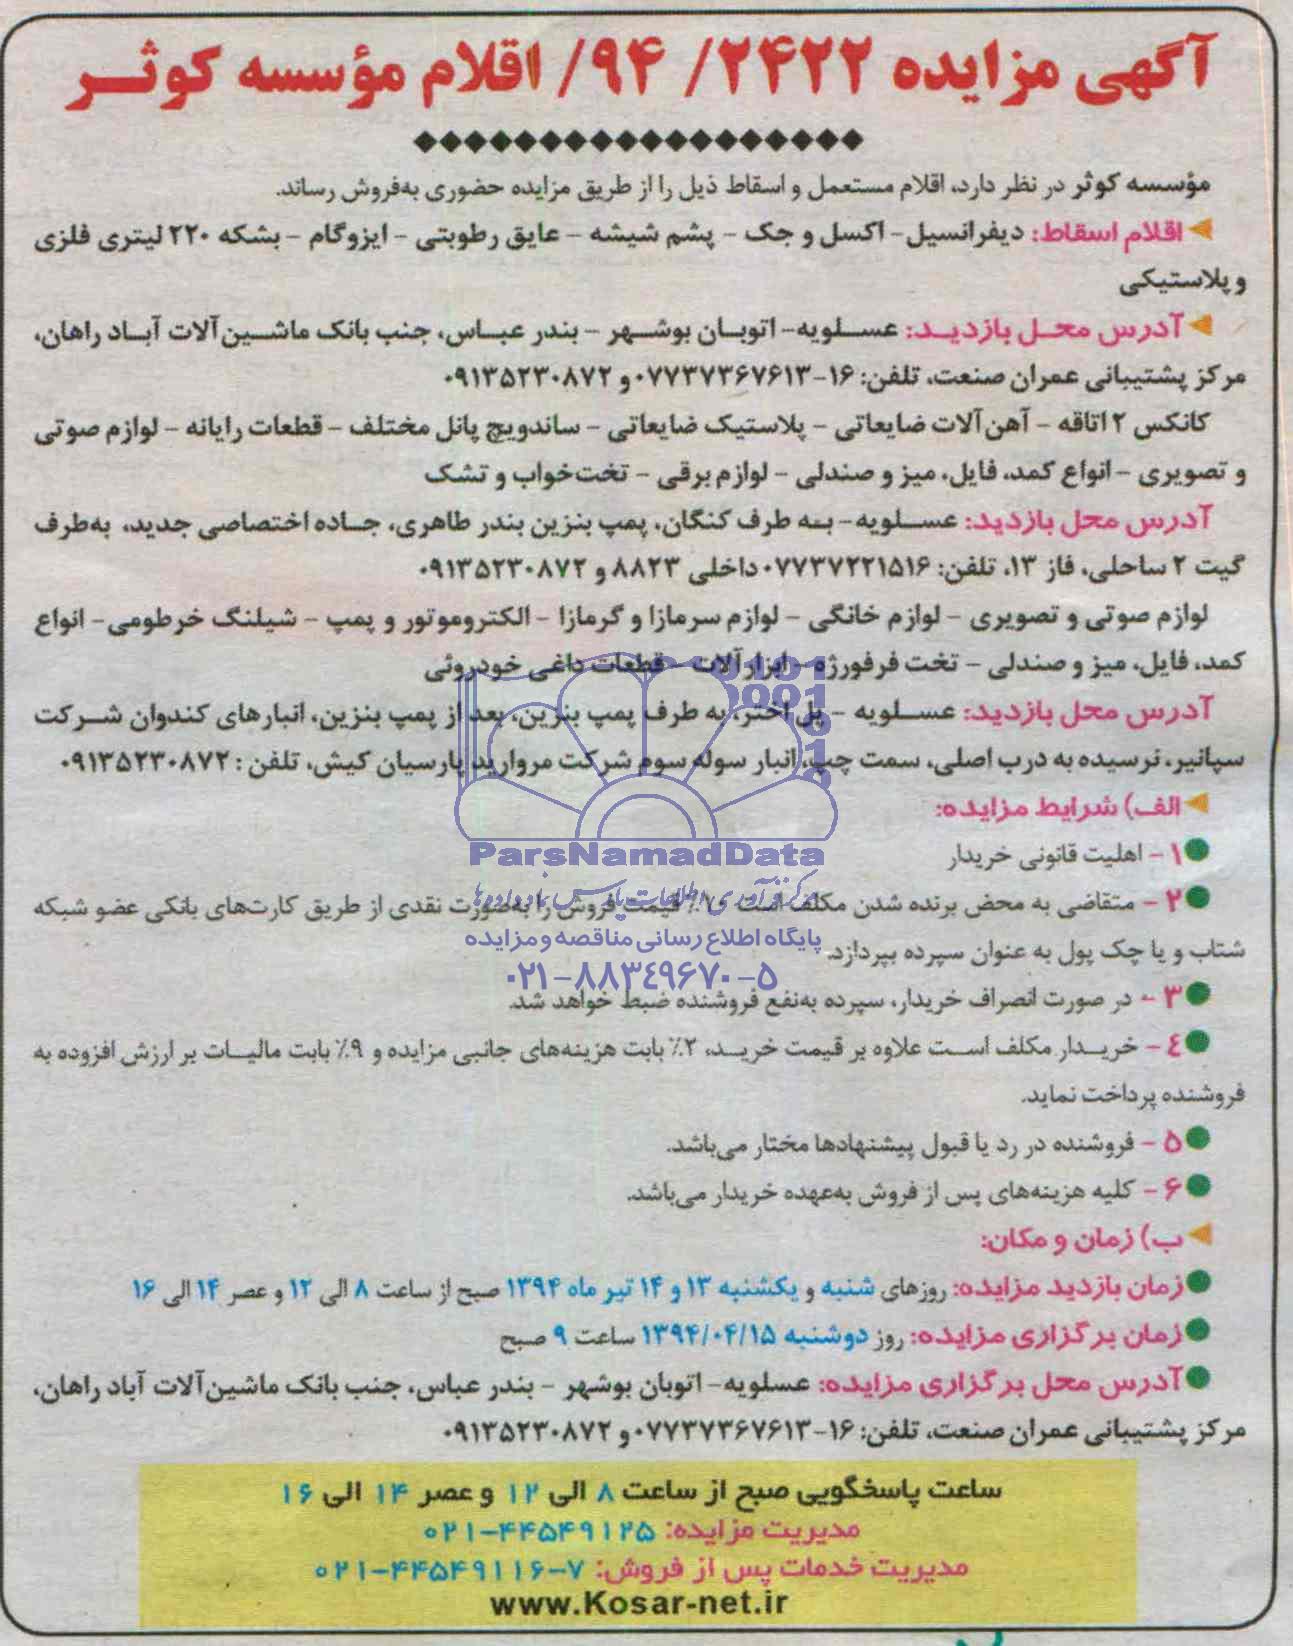 آگهی مزایده ۲۴۲۲/ ۹۴/ اقلام مؤسسه کوثر
مؤسسه کوثر در نظر دارد، اقلام مستعمل و اسقاط ذیل را از طریق مزایده حضوری به‌فروش رساند.
اقلام اسقاط: دیفرانسیل- اکسل و جک - پشم شیشه - عایق رطوبتی - ایزوگام - بشکه ۲۲۰ لیتری فلزی
و پلاستیکی
آدرس محل بازدید: عسلویه- اتوبان بوشهر - بندر عباس، جنب بانک ماشین‌آلات آباد راهان،
مرکز پشتیبانی عمران صنعت، تلفن: ۱۶-۰۷۷۳۷۳۶۷۶۱۳ و ۰۹۱۳۵۲۳۰۸۷۲
کانکس ۲ اتاقه - آهن‌آلات ضایعاتی - پلاستیک ضایعاتی - ساندویچ پانل مختلف - قطعات رایانه - لوازم صوتی
و تصویری - انواع کمد، فایل، میز و صندلی - لوازم برقی - تخت‌خواب و تشک
آدرس محل بازدید: عسلویه- به طرف کنگان، پمپ بنزین بندر طاهری، جاده اختصاصی جدید، به‌طرف
گیت ۲ ساحلی، فاز ۱۳، تلفن: ۰۷۷۳۷۲۲۱۵۱۶ داخلی ۸۸۲۳ و ۰۹۱۳۵۲۳۰۸۷۲
لوازم صوتی و تصویری - لوازم خانگی - لوازم سرمازا و گرمازا - الکتروموتور و پمپ - شیلنگ خرطومی- انواع
کمد، فایل، میز و صندلی - تخت فرفورژه - ابزارآلات - قطعات داغی خودروئی
آدرس محل بازدید: عسلویه - پل اختر، به طرف پمپ بنزین، بعد از پمپ بنزین، انبارهای کندوان شرکت
سپانیر، نرسیده به درب اصلی، سمت چپ، انبار سوله سوم شرکت مروارید پارسیان کیش، تلفن: ۰۹۱۳۵۲۳۰۸۷۲
الف) شرایط مزایده:
۱- اهلیت قانونی خریدار
ParsNamadData
۲- متقاضی به محض برنده شدن مکلف است ۷۰٪ قیمت فروش را به‌صورت نقدی از طریق کارت‌های بانکی عضو شبکه
پایگاه اطلاع رسانی مناقصه و مزایده
شتاب و یا چک پول به عنوان سپرده بپردازد.
۰۲۱-۸۸۳۴۹۶۷۰-۵
۳- در صورت انصراف خریدار، سپرده به‌نفع فروشنده ضبط خواهد شد.
۴- خریدار مکلف است علاوه بر قیمت خرید، ۲٪ بابت هزینه‌های جانبی مزایده و ۹٪ بابت مالیات بر ارزش افزوده به
فروشنده پرداخت نماید.
۵- فروشنده در رد یا قبول پیشنهادها مختار می‌باشد.
۶- کلیه هزینه‌های پس از فروش به‌عهده خریدار می‌باشد.
ب) زمان و مکان:
زمان بازدید مزایده: روزهای شنبه و یکشنبه ۱۳ و ۱۴ تیر ماه ۱۳۹۴ صبح از ساعت ۸ الی ۱۲ و عصر ۱۴ الی ۱۶
زمان برگزاری مزایده: روز دوشنبه ۱۳۹۴/۰۴/۱۵ ساعت ۹ صبح
آدرس محل برگزاری مزایده: عسلویه- اتوبان بوشهر - بندر عباس، جنب بانک ماشین‌آلات آباد راهان،
مرکز پشتیبانی عمران صنعت، تلفن: ۱۶-۰۷۷۳۷۳۶۷۶۱۳ و ۰۹۱۳۵۲۳۰۸۷۲
ساعت پاسخگویی صبح از ساعت ۸ الی ۱۲ و عصر ۱۴ الی ۱۶
مدیریت مزایده: ۰۲۱-۴۴۵۴۹۱۲۵
مدیریت خدمات پس از فروش: ۰۲۱-۴۴۵۴۹۱۱۶-۷
www.Kosar-net.ir